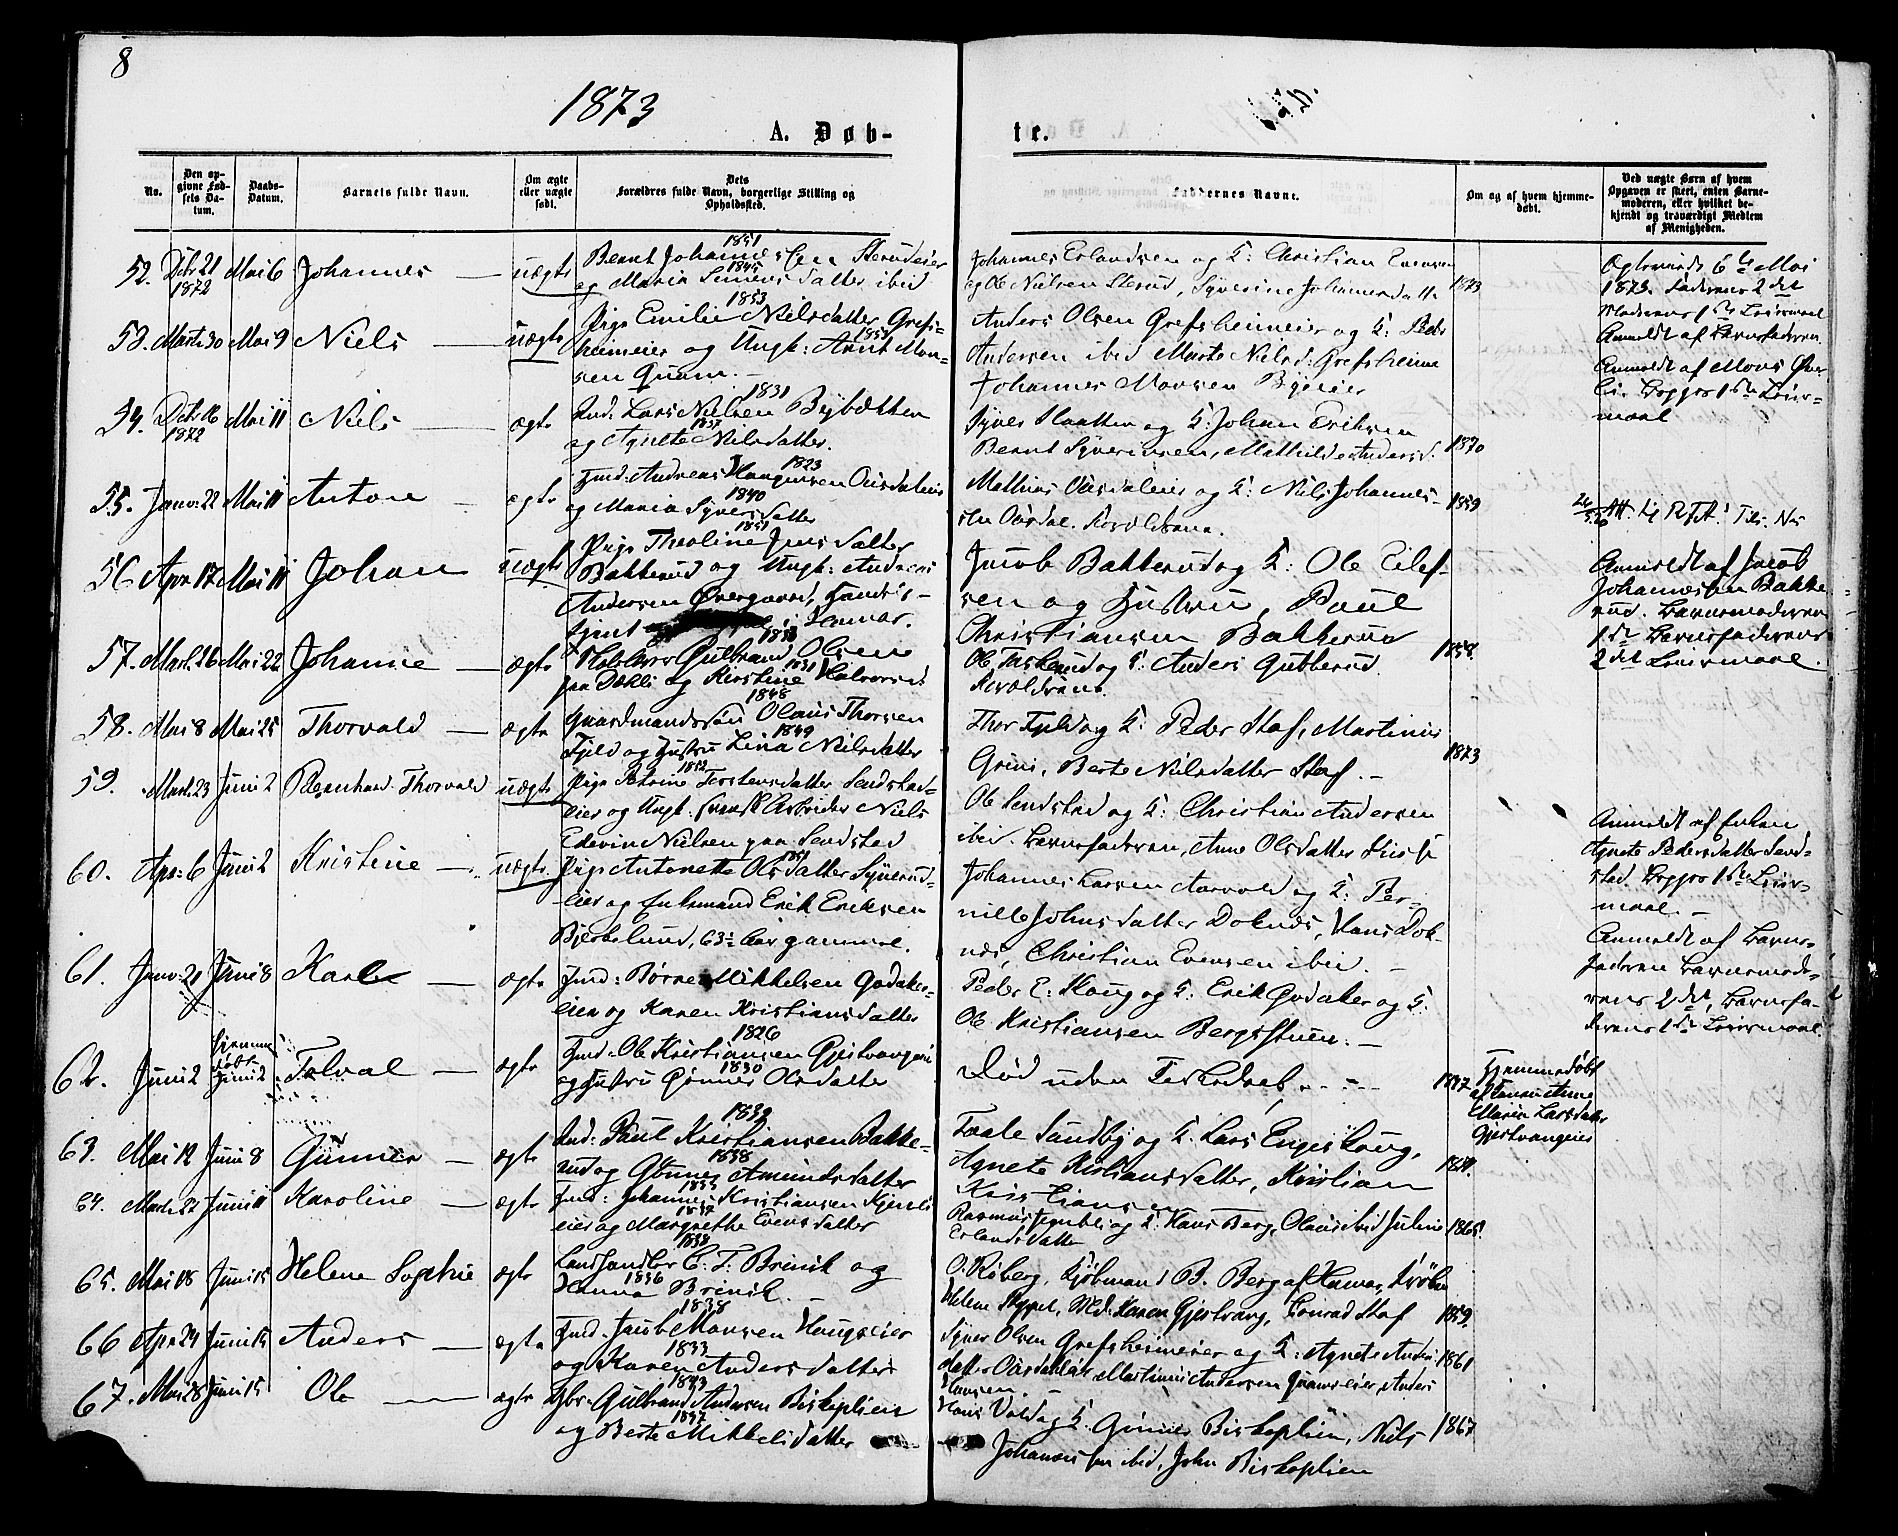 8
1873
A. Døb-
te.
No.
Den op-
givne Fød-
sels Da-
tum.
Daabs-
Datum.
Barnets fulde Navn.
Om ægte
eller uægte
født.
Dets
Forældres fulde Navn, borgerlige Stilling og
Opholdssted.
Faddernes Navne.
Om og af hvem hjemme-
døbt.
Ved uægte Børn af hvem
Opgaven er skeet, enten Barne-
moderen, eller hvilket be-
kjendt og troværdigt Medlem
af Menigheden.
52. Dcbr 21 1872 Mai 6 Johannes — uægte
1851
Bernt Johannessen Sterudeier
1845
og Maria Simensdatter ibid
Johannes Erlandsen og K: Christian Evensen
og Ole Nielsen Sterud, Syverine Johannesdatter
1873
6te Mai
1873. Faderens 2det
Moderens 1ste Leiermaal
53. Marts 30 Mai 9 Niels — uægte
1853
Pige Emilie Nielsdatter Grefs-
1854
heimeier og Ungk: Arnt Mon-
sen Qvam. —
Anders Olsen Grefsheimeier og K: Peder
Andersen ibid Marte Nielsd: Grefsheim
Johannes Monsen
Anmeldt af Barnefaderen
Anmeldt af Mons
Begges 1ste Leier-
maal
54. Dcbr 16 1872 Mai 11 Niels — ægte
1831
Ind: Lars Nielsen Bybækken
1837
og Agnete Nilsdatter.
Syver Slaatten og K: Johan Eriksen
Bernt Syverinsen, Mathilde Andersd.
1870
55. Janv: 22 Mai 11 Anton — ægte
1823
Indst: Andreas Haagensen Aasdaleier
1840
og Maria Syversdatter
Mathias Aasdaleier og K: Nils Johannes-
sen Aasdal. Forældrene.
1859
56 Apr. 17 Mai 11 Johan uægte
1851
Pige Theoline Jensdatter
Bakkerud og Ungk: Andreas
Andersen Øvergaard, Handels-
tjent i Hamar.
Jacob Bakkerud og K: Ole Eilef-
sen og Hustru, Paul
Christiansen Bakkerud
Anmeldt af Jacob
Johannessen Bakke-
rud. Barnemoderens
1ste Barnefaderens
2det Leiermaal.
57. Mart. 26 Mai 22 Johanne — ægte
1833
Gulbrand Olsen
1831
paa Dæhli og Kirstine Halvorsd:
Ole Taskerud og K: Anders Gubberud
Forældrene.
1858.
58. Mai 8 Mai 25 Thorvald — ægte
1848
Gaardmandssøn Olaus Thorsen
1849
Fjeld og Hustru Lina Nilsdatter
Thor Fjeld og K: Peder Staf, Martinius
Grini, Berte Nilsdatter Staf. —
1873
59. Mart. 23 Juni 2 Bernhard Thorvald uægte
1852
Pige Petrine Torstensdatter Sendstad-
eier og Ungk: svensk Arbeider Niels
Edevin Nielsen paa Sendstad
Ole Sendstad og K: Christian Andersen
ibid. Barnefaderen, Anne Olsdatter
Anmeldt af Enken
Agnete Pedersdatter Send-
stad. Begges 1ste Leier-
maal. —
60. Apr: 6 Juni 2 Kristine — uægte.
1851
Pige Antonette Olsdatter Syverud-
eier og Enkemand Erik Eriksen
Bjerkelund, 63: Aar gammel.
Johannes Larsen Aarvold og K: Per-
nille Johnsdatter Doknæs, Hans Dok-
næs, Christian Evensen ibid. —
Anmeldt af Barne-
faderen Barnemode-
rens 2det, Barnefa-
derens 1ste Leiermaal.
61. Janv: 21 Juni 8 Karl — ægte
Indst: Børre Mikkelsen Godaker-
eier og Karen Kristiansdatter
Peder E: Haug og K: Erik Godaker og K:
Ole Kristiansen Bergsstuen. —
62. Juni 2 hjemme døbt Juni 2 Tolval — ægte
1826
Indst: Ole Kristiansen Gjestvangeie
1830
og Hustru Gønner Olsdatter
Død uden Kirkedaab. — —
1847
Hjemmedøbt
af Anne
Marie Larsdatter
Gjestvangeier
63. Mai 12 Juni 8 Gunner — ægte
1832
Ind: Paul Kristiansen Bakke-
1838
rud og Gønner Amundsdatter
Taale Sundby og K. Lars Engeshoug,
Agnete Kristiansdatter, Kristian
Kristiansen
64. Mart. 22 Juni 11 Karoline — ægte
1835
Indst: Johannes Kristiansen
1837
eier og Margrethe Evensdatter
Rasmus og K: Hans Berg, Olaus ibid Juline
Erlandsdatter
1865.
65. Mai 18 Juni 15 Helene Sophie ægte
1838
Landhandler C. F. Brinik og
1846
Hanna Brinik. —
O. Roberg, Kjøbmand B. Berg af Hamar, Frøken
Helene Skyped, Md: Karen Gjestvang, Conrad Staf
1859.
66 Apr. 24 Juni 15 Anders — ægte
1838
Indst. Jacob Monsen Haugseier
1833
og Karen Andersdatter
Syver Olsen Grefsheimeier og K: Agnete Anders-
datter Aasdaleier Martinius Andersen Qvamseier, Anders
Hansen. —
1861
67. Mai 28 Juni 15 Ole — ægte
1843
Gbr: Gulbrand Andersen Biskoplien
1847
og Berte Mikkelsdatter
Hans Vold og K. Gunner Biskoplien, Nils
Johannessen ibid, John Biskoplien
1867